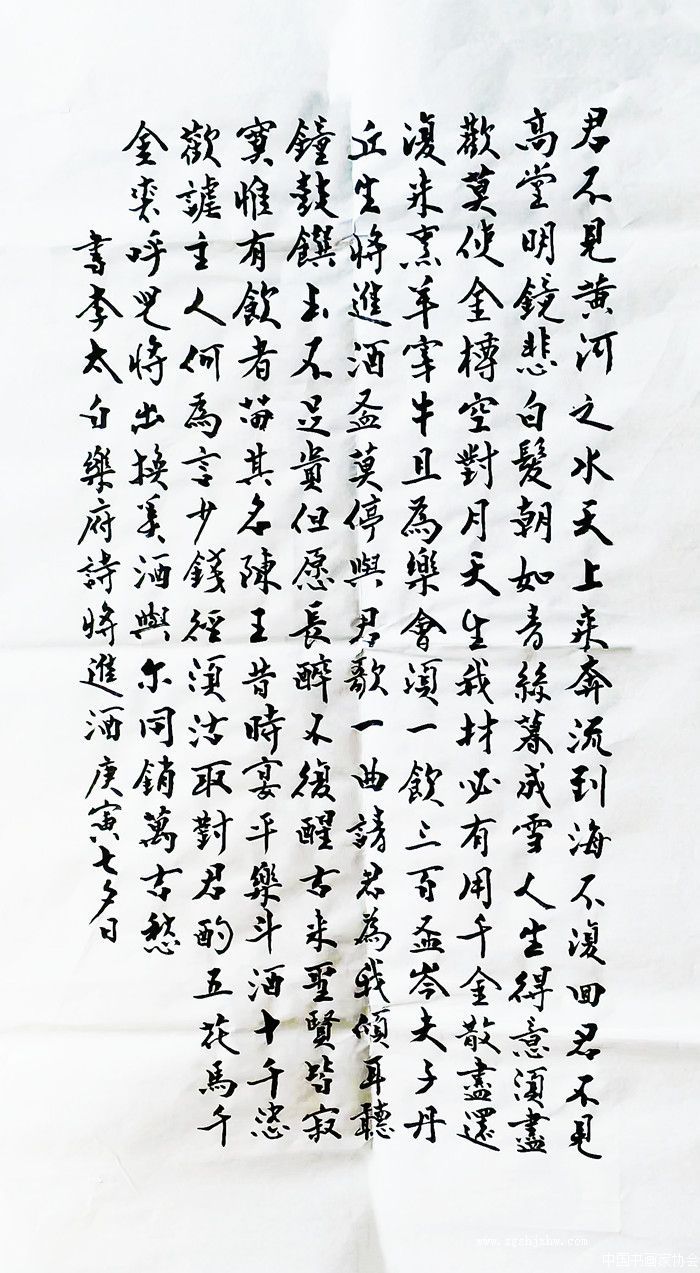 君不見黄河之水天上来奔流到海不復回君不見
高堂明鏡悲白髮朝如青絲暮成雪人生得意須盡
歡莫使金樽空對月天生我材必有用千金散盡還
復来烹羊宰牛且為樂會須一飲三百盃岑夫子丹
丘生将進酒盃莫停與君歌一曲請君為我傾耳聽
鐘鼓饌玉不足貴但愿長醉不復醒古来聖賢皆寂
寞惟有飲者留其名陳王昔時宴平樂斗酒十千恣
歡謔主人何為言少錢徑須沽取對君酌五花馬千
金裘呼兒将出換美酒與尔同銷萬古愁
書李太白樂府詩将進酒庚寅七夕日
www.zgshjxhw.com
中国书画家协会